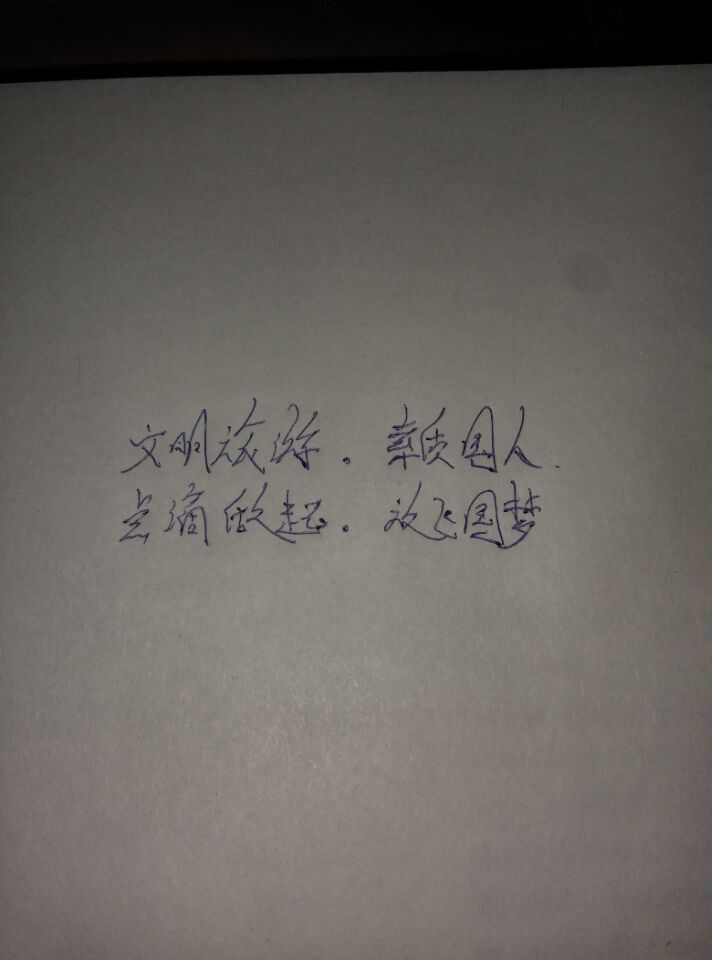 文明旅游。素质国人.
点滴做起。放飞国梦